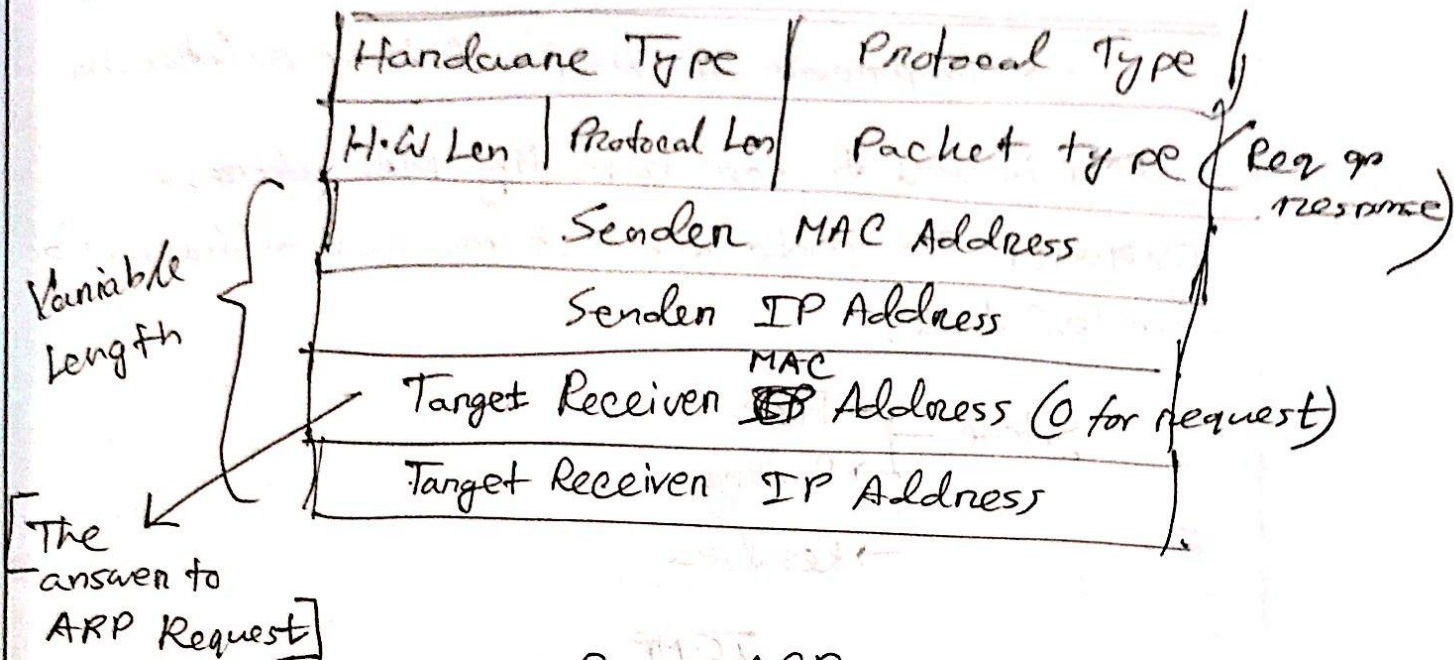 Hardware Type Protocol Type
H.W Len Protocol Len Packet type (Req or response)
Sender MAC Address
Sender IP Address
Target Receiver MAC Address (0 for request)
Target Receiver IP Address
Variable
Length
[The
answer to
ARP Request]